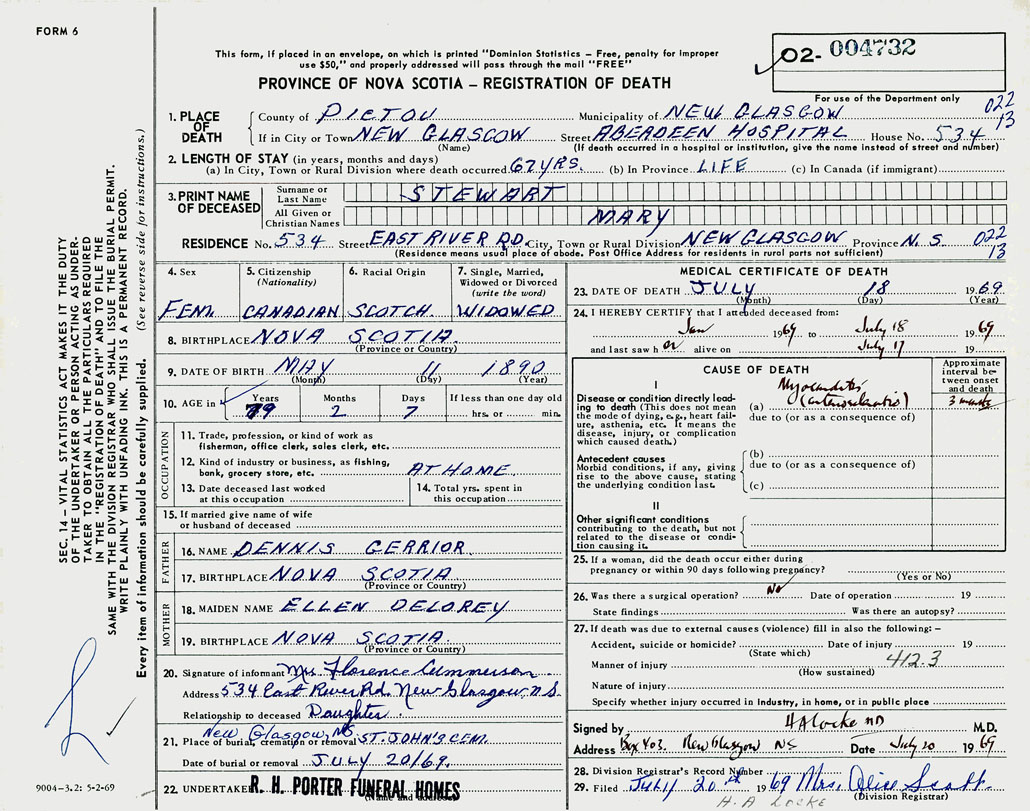 FORM 6
This form, if placed in an envelope, on which is printed "Dominion Statistics – Free, penalty for improper
use $50," and properly addressed will pass through the mail "FREE"
O2- 004732
PROVINCE OF NOVA SCOTIA – REGISTRATION OF DEATH
For use of the Department only
022
13
1. PLACE OF DEATH
County of PICTOU Municipality of NEW GLASGOW
If in City or Town NEW GLASGOW Street ABERDEEN HOSPITAL House No. 534
(Name) (If death occurred in a hospital or institution, give the name instead of street and number)
2. LENGTH OF STAY (in years, months and days)
(a) In City, Town or Rural Division where death occurred 67 YRS. (b) In Province LIFE (c) In Canada (if immigrant)
3. PRINT NAME OF DECEASED
Surname or Last Name STEWART
All Given or Christian Names MARY
RESIDENCE No. 534 Street EAST RIVER RD. City, Town or Rural Division NEW GLASGOW Province N. S. 022
13
(Residence means usual place of abode. Post Office Address for residents in rural parts not sufficient)
4. Sex 5. Citizenship (Nationality) 6. Racial Origin 7. Single, Married, Widowed or Divorced (write the word)
FEM. CANADIAN SCOTCH WIDOWED
8. BIRTHPLACE NOVA SCOTIA
(Province or Country)
9. DATE OF BIRTH MAY 11 1890
(Month) (Day) (Year)
10. AGE in Years Months Days If less than one day old
79 2 7 hrs. or min.
OCCUPATION
11. Trade, profession, or kind of work as
fisherman, office clerk, sales clerk, etc.
12. Kind of industry or business, as fishing,
bank, grocery store, etc. AT HOME
13. Date deceased last worked
at this occupation
14. Total yrs. spent in
this occupation
15. If married give name of wife
or husband of deceased
FATHER
16. NAME DENNIS GERRIOR
17. BIRTHPLACE NOVA SCOTIA
(Province or Country)
MOTHER
18. MAIDEN NAME ELLEN DELOREY
19. BIRTHPLACE NOVA SCOTIA
(Province or Country)
20. Signature of informant Mrs. Florence Cummerson
Address 534 East River Rd. New Glasgow, N.S.
Relationship to deceased Daughter.
New Glasgow, NS
21. Place of burial, cremation or removal ST. JOHN'S CEM.
Date of burial or removal JULY 20/69.
22. UNDERTAKER R. H. PORTER FUNERAL HOMES
(Name and address)
MEDICAL CERTIFICATE OF DEATH
23. DATE OF DEATH JULY 18 1969
(Month) (Day) (Year)
24. I HEREBY CERTIFY that I attended deceased from:
Jan 1969 to July 18 1969
and last saw her alive on July 17 19
CAUSE OF DEATH
Approximate interval between onset and death
I
Disease or condition directly leading to death (This does not mean the mode of dying, e.g., heart failure, asthenia, etc. It means the disease, injury, or complication which caused death.)
(a) Myocarditis
(arteriosclerotic) 3 months
due to (or as a consequence of)
Antecedent causes
Morbid conditions, if any, giving rise to the above cause, stating the underlying condition last.
(b)
due to (or as a consequence of)
(c)
II
Other significant conditions
contributing to the death, but not related to the disease or condition causing it.
25. If a woman, did the death occur either during
pregnancy or within 90 days following pregnancy?
(Yes or No)
26. Was there a surgical operation? No Date of operation 19
State findings Was there an autopsy?
27. If death was due to external causes (violence) fill in also the following: –
Accident, suicide or homicide? Date of injury 19
(State which) 412.3
Manner of injury
(How sustained)
Nature of injury
Specify whether injury occurred in Industry, in home, or in public place
Signed by H A Locke MD M.D.
Address Box 403. New Glasgow NS Date July 20 1969
28. Division Registrar's Record Number
29. Filed July 20th 1969 Mrs. Alice Scott.
(Division Registrar)
H. A LOCKE
SEC. 14 – VITAL STATISTICS ACT MAKES IT THE DUTY
OF THE UNDERTAKER OR PERSON ACTING AS UNDER-
TAKER TO OBTAIN ALL THE PARTICULARS REQUIRED
IN THE "REGISTRATION OF DEATH" AND TO FILE THE
SAME WITH THE DIVISION REGISTRAR WHO SHALL ISSUE THE BURIAL PERMIT.
WRITE PLAINLY WITH UNFADING INK. THIS IS A PERMANENT RECORD.
Every item of information should be carefully supplied. (See reverse side for instructions.)
9004-3.2: 5-2-69